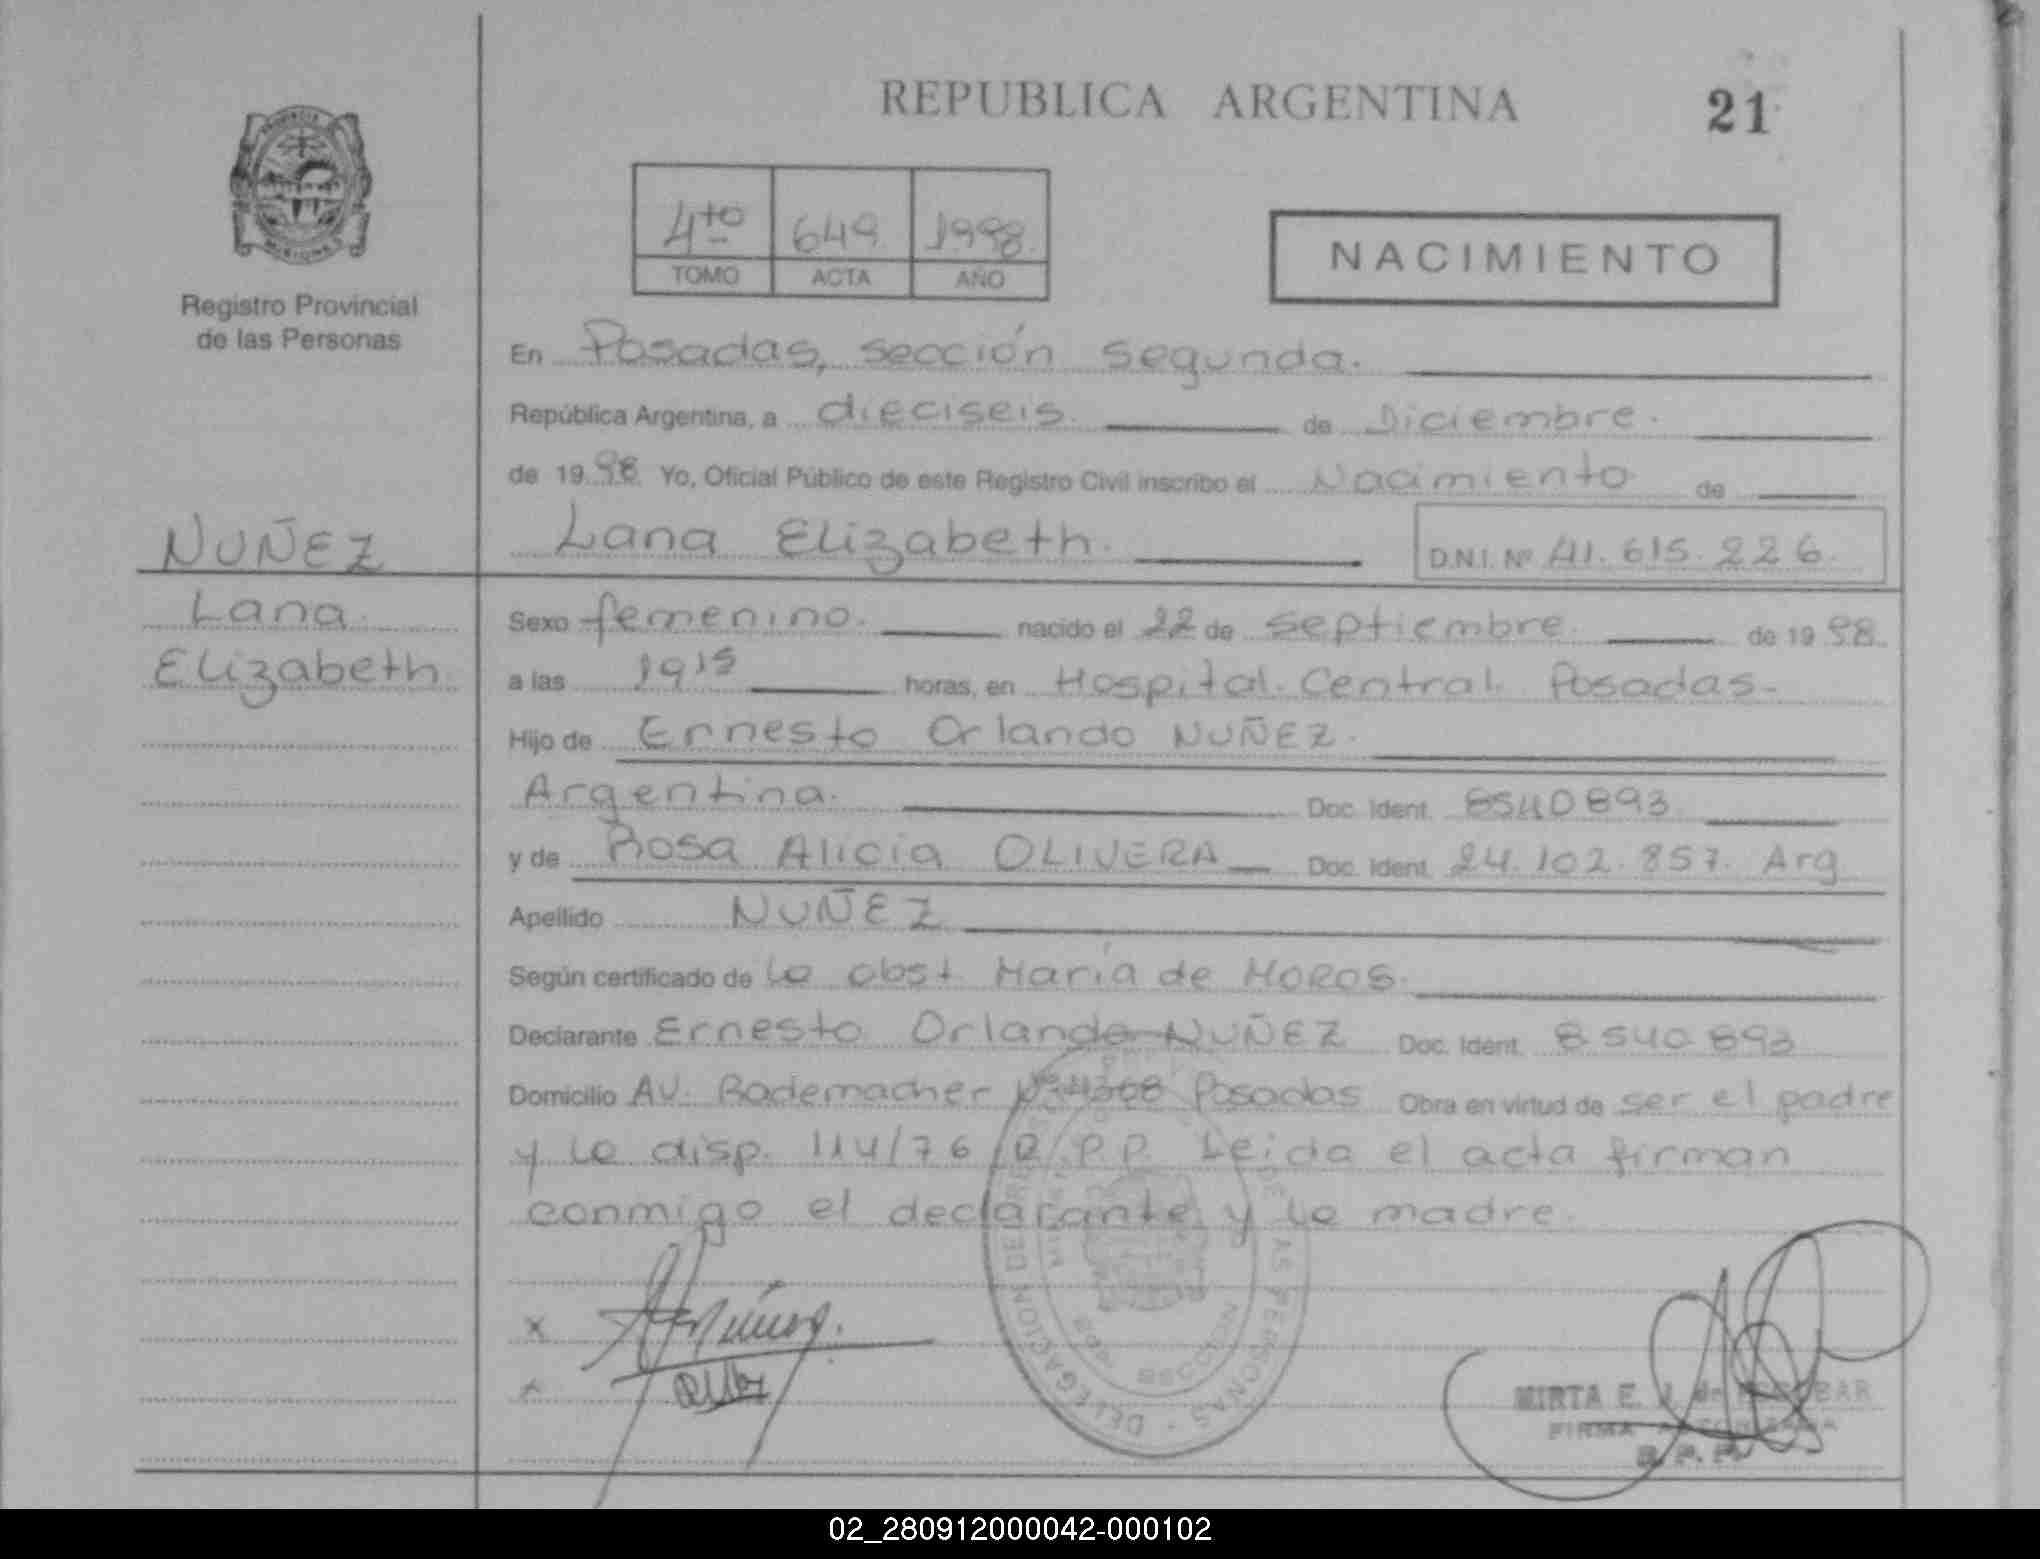 REPUBLICA ARGENTINA
21
PROVINCIA
MISIONES
Registro Provincial
de las Personas
4to 649 1998.
TOMO ACTA AÑO
NACIMIENTO
En Posadas, sección segunda.
República Argentina, a dieciseis. de Diciembre.
de 19 98 Yo, Oficial Público de este Registro Civil inscribo el Nacimiento de
NUÑEZ
Lana Elizabeth. D.N.I. Nº 41.615.226.
Lana
Elizabeth
Sexo femenino. nacido el 22 de septiembre. de 19 98.
a las 1915 horas, en Hospital Central Posadas-
Hijo de Ernesto Orlando NUÑEZ.
Argentina. Doc. Ident. 8540893
y de Rosa Alicia OLIVERA Doc. Ident. 24.102.857. Arg
Apellido NUÑEZ
Según certificado de la obst María de MOROS.
Declarante Ernesto Orlando NUÑEZ Doc. Ident. 8540893
Domicilio Av. Rademacher Posadas Obra en virtud de ser el padre
y la disp. 114/76 R.P.P. Leida el acta firman
conmigo el declarante y la madre.
X
X
DELEGACION DE AS PERSONAS
MIRTA E. de ESCOBAR
FIRMA AUTORIZADA
R.P.P.
02_280912000042-000102